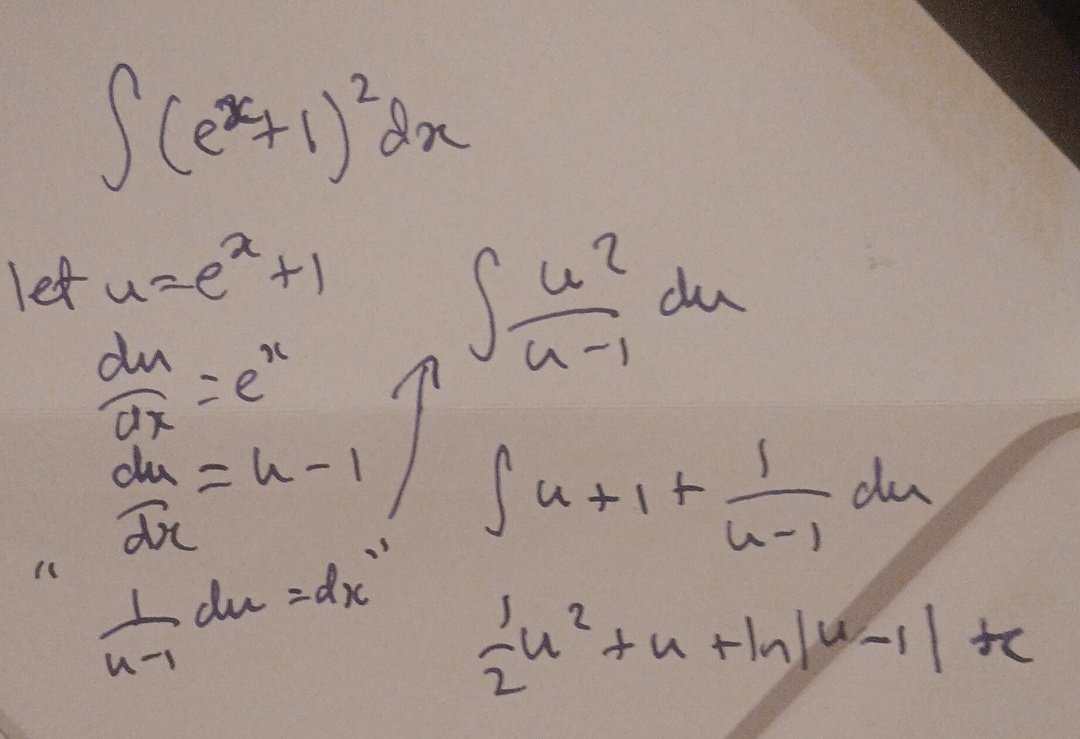 ∫(eˣ+1)²dx
let u=eˣ+1
du/dx = eˣ
du/dx = u-1
" 1/(u-1) du = dx "
∫ u²/(u-1) du
∫ u+1+ 1/(u-1) du
1/2 u² + u + ln|u-1| +c